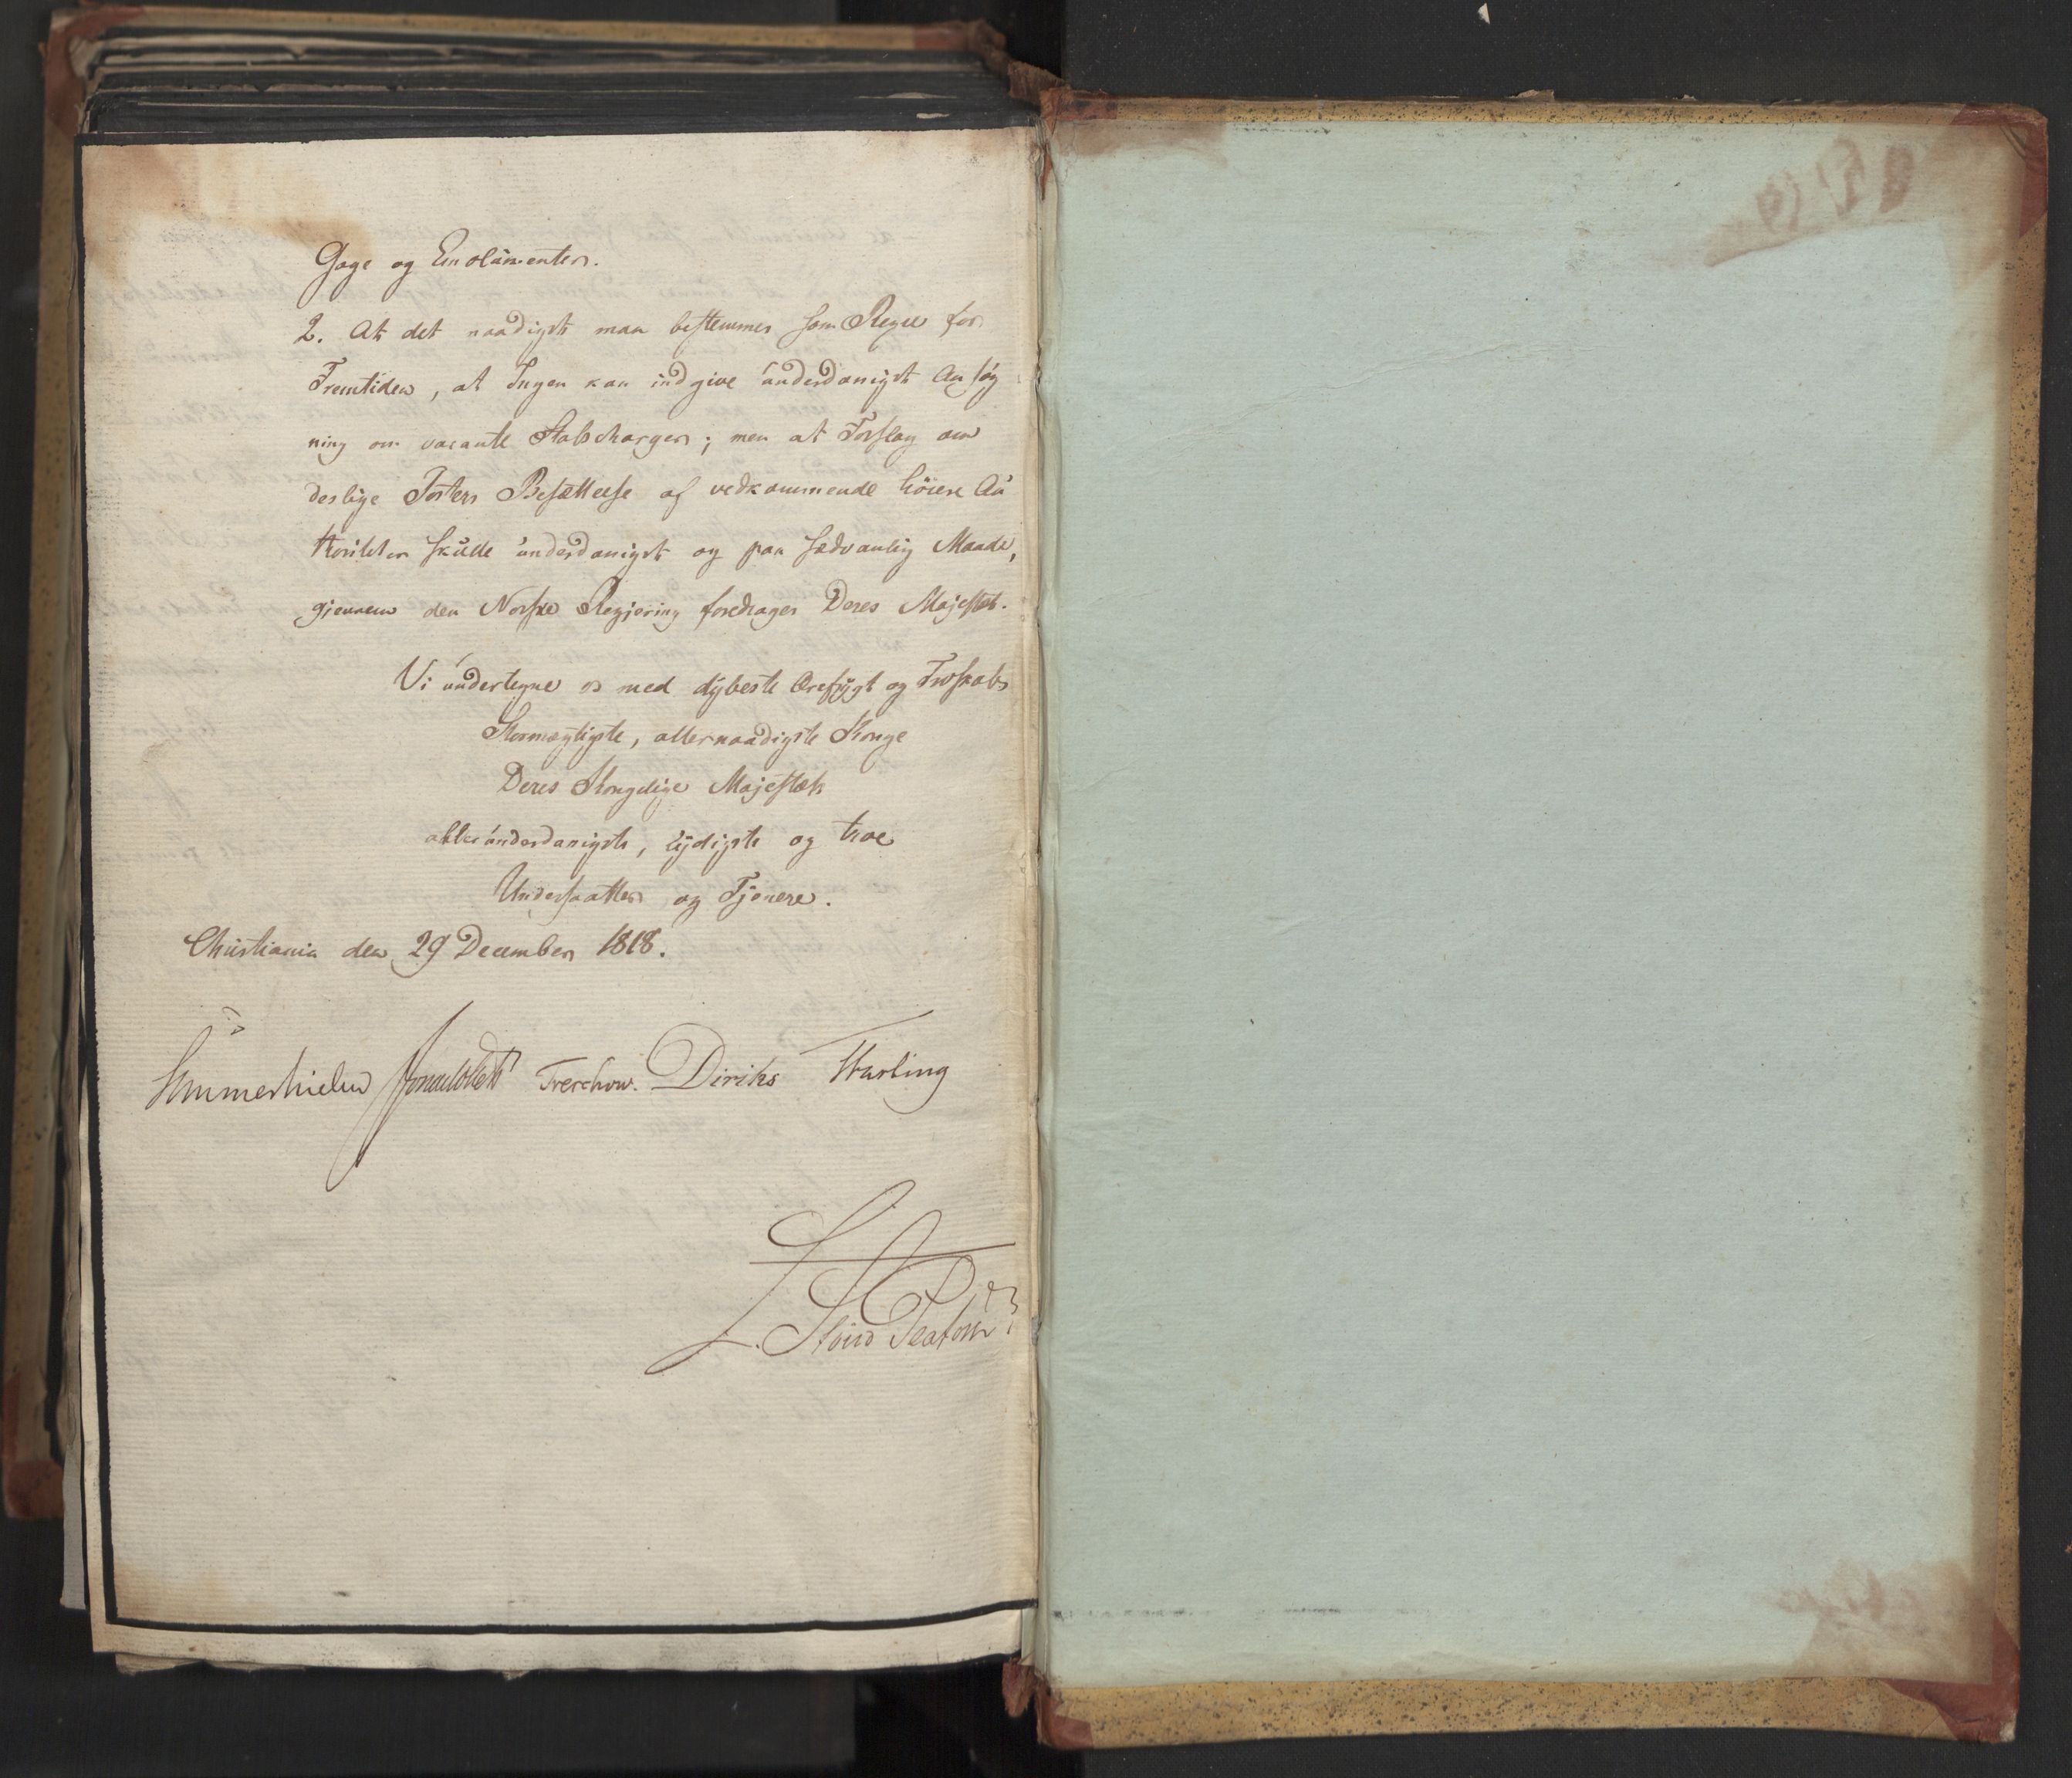 Gage og Emolumenter.
2. At det naadigst maa bestemmes som Regel for
Fremtiden, at Ingen kan indgive underdanigst Ansøg
ning om vacante Stabscharger; men at Forslag om
deslige Posters Besættelse af vedkommende høiere Au
thoriteter skulle underdanigst og paa sædvanlig Maade,
gjennem den Norske Regjering foredrages Deres Majestæt.
Vi undertegne os med dybeste Ærefrygt og Troskab
Stormægtigste, allernaadigste Konge
Deres Kongelige Majestæts
allerunderdanigste, lydigste og troe
Undersaatter og Tjenere.
Christiania den 29 December 1818.
Sommerhielm Treschow. Diriks Fasting